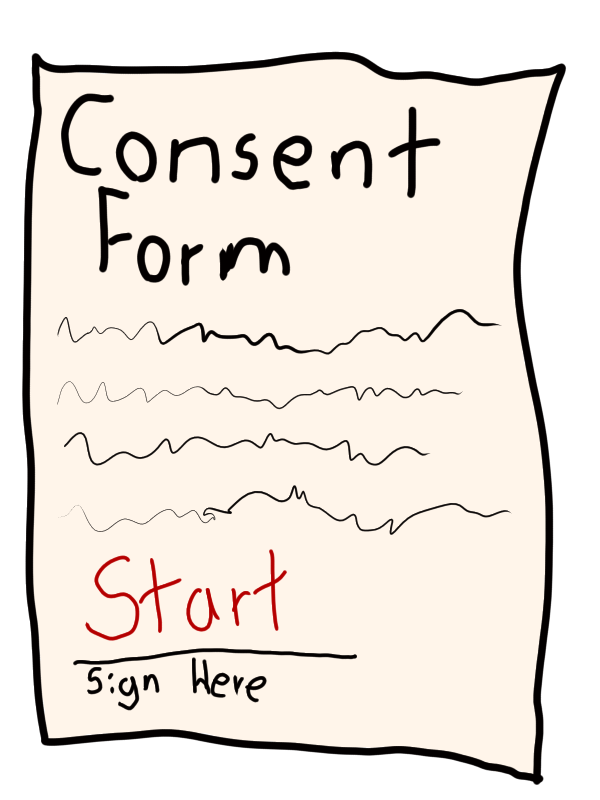 Consent
Form
Start
Sign Here